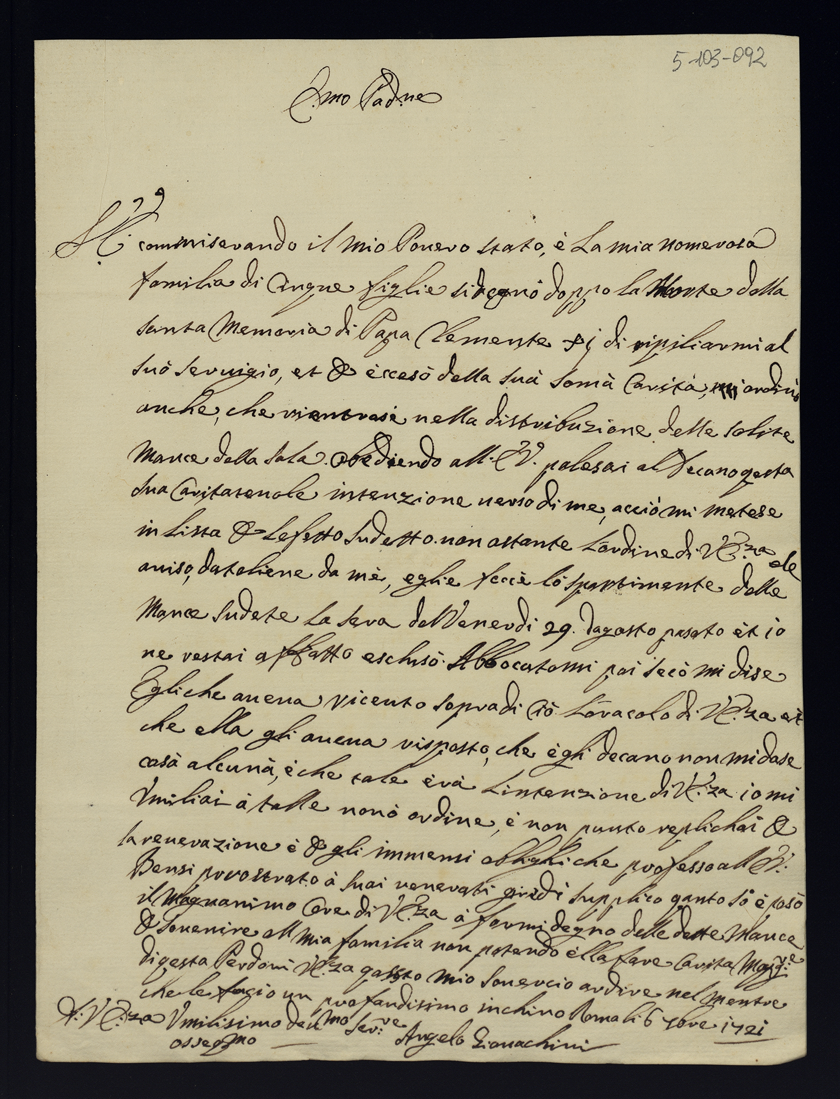 5-103-092
E.mo Padrne
V.E. commiserando il mio Povero stato, è La mia nomerosa
familia di Cinque figlie sidegnó doppo la Morte della
santa Memoria di Papa Clemente xj di ripiliarmi al
suó seruigio, et & éccesó della suá somá Caritá, mi ordinó
anche, che rientrase nella distribuzione delle solite
Mance della sala. Obediendo all. E.V. palesai al Decano qesta
sua Caritateuole intenzione uerso di me, acció mi metese
in Lista & Lefetto sudetto. non ostante L'ordine di V.E.za ele
auiso, datoliene da mè, eglie feccè ló spartimente delle
Mance sudete la sera del Venerdi 29. dagosto pasato èt io
ne restai affatto esclusó. Abbocatomi poi secó mi dise
Egli che aueua ricento sopra di Ció L'oracolo di V.E.za et
che ella gli aueua risposto, che égli decano non mi dase
cosà alcunà, é che tale érà L'intenzione di V.E.za io mi
Vmiliai à talle nonó ordine, é non punto replichai &
la renerazione é & gli immensi oblighi che professo all E.V.
Bensi provstrato á suoi uenerati piedi supplico qanto só é posó
il Magnanimo Core di V.E.za á farmi degno delle dette Mance
& souenire all Mia familia non potendo élla fare Carita Magg.re
di qesta Perdoni V.E.za qesto mio souercio ardire nel mentre
che le facio un profondisimo inchino Roma li 6 7bre 1721
D: V.E.za Vmilisimo deu.mo Ser.re
osseq.mo Angelo Gionachini